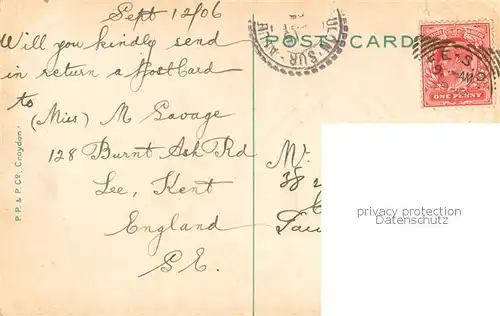 Sept 12/06
Will you kindly send
in return a Post Card
to
(Miss) M Savage
128 Burnt Ash Rd
Lee, Kent
England
S.E.
P.P. & P. Co, Croydon
POST CARD
SUR
ONE PENNY
AM
Mr.
38
privacy protection
www.ansichtskarten-center.de